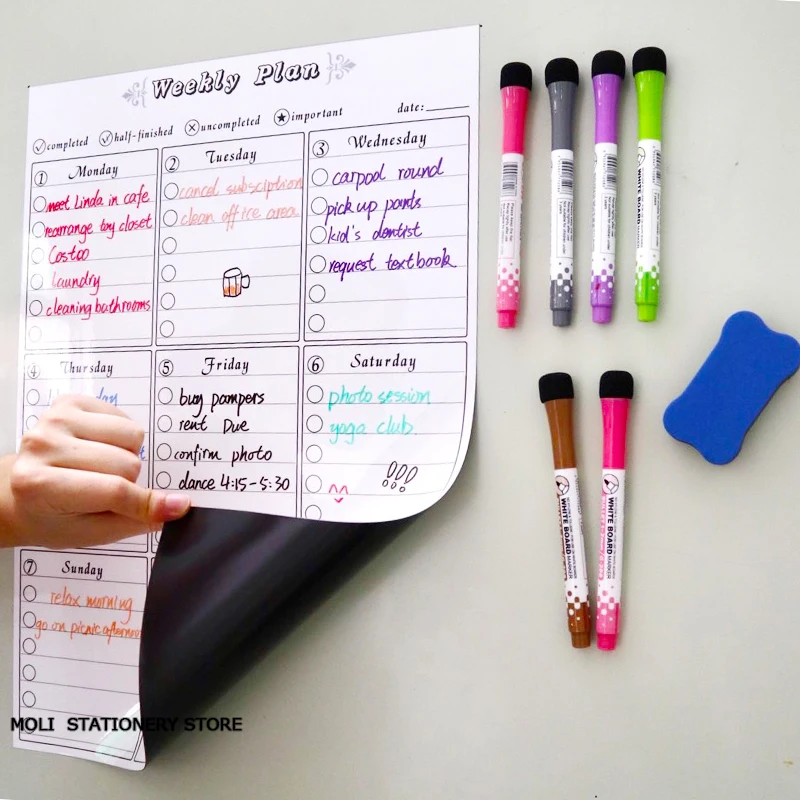 Weekly Plan
completed half-finished uncompleted important date:
1 Monday
meet Linda in cafe
rearrange toy closet
Costoo
laundry
cleaning bathrooms
2 Tuesday
cancel subsciption
clean office area
3 Wednesday
carpool round
pick up pants
kid's dentist
request textbook
4 Thursday
day
5 Friday
buy pampers
rent Due
confirm photo
dance 4:15-5:30
6 Saturday
photo session
yoga club
!!!
7 Sunday
relax morning
go on picnic afternoon
MOLI STATIONERY STORE
WHITE BOARD
WHITE BOARD MARKER
WHITE BOARD MARKER